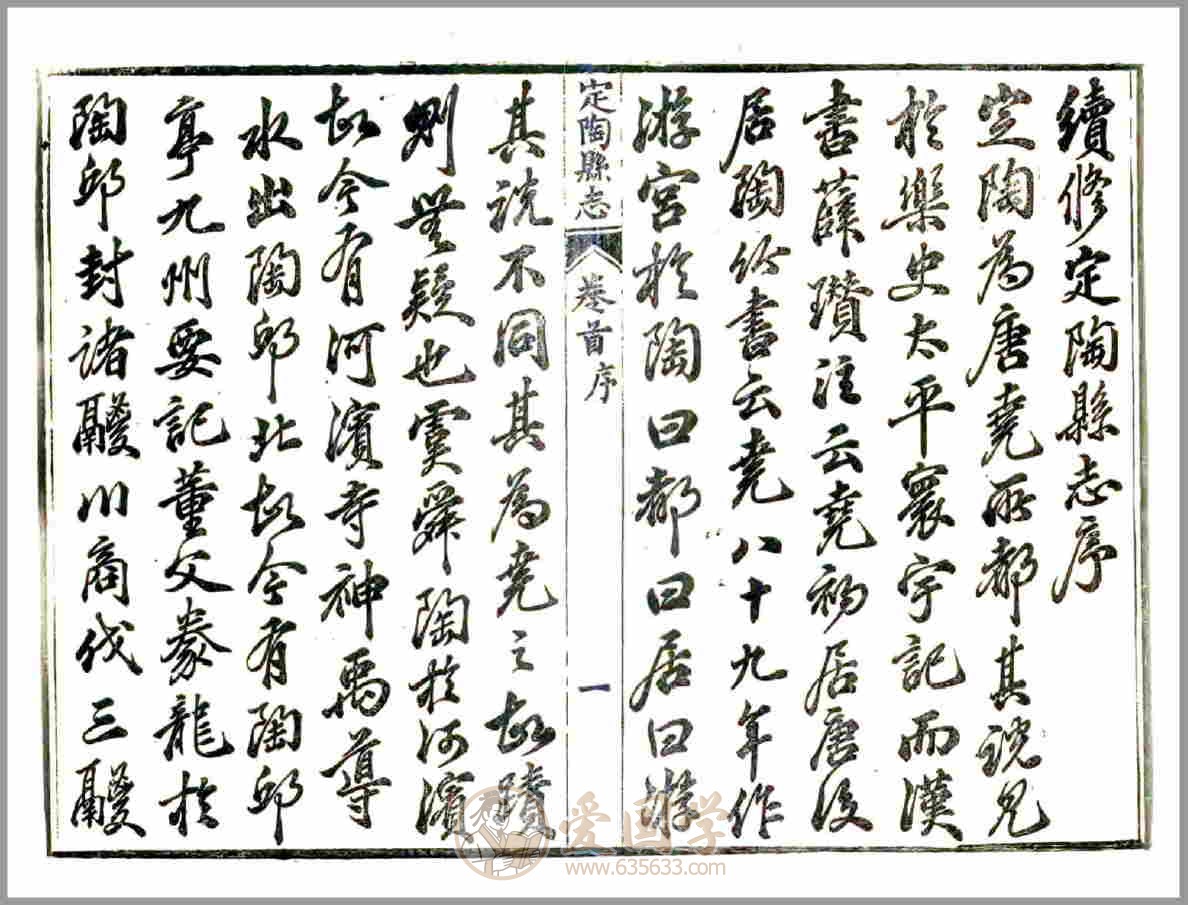 續修定陶縣志序
定陶為唐堯所都其說見
於樂史太平寰宇記而漢
書薛瓚注云堯初居唐後
居陶竹書云堯八十九年作
游宮於陶曰都曰居曰游
定陶縣志
卷首序
一
其說不同其為堯之故蹟
則無疑也虞舜陶於河濱
故今有河濱寺神禹導
水出陶邱北故今有陶邱
亭九州要記董父豢龍於
陶邱封諸鬷川商伐三鬷
爱国学
www.635633.com